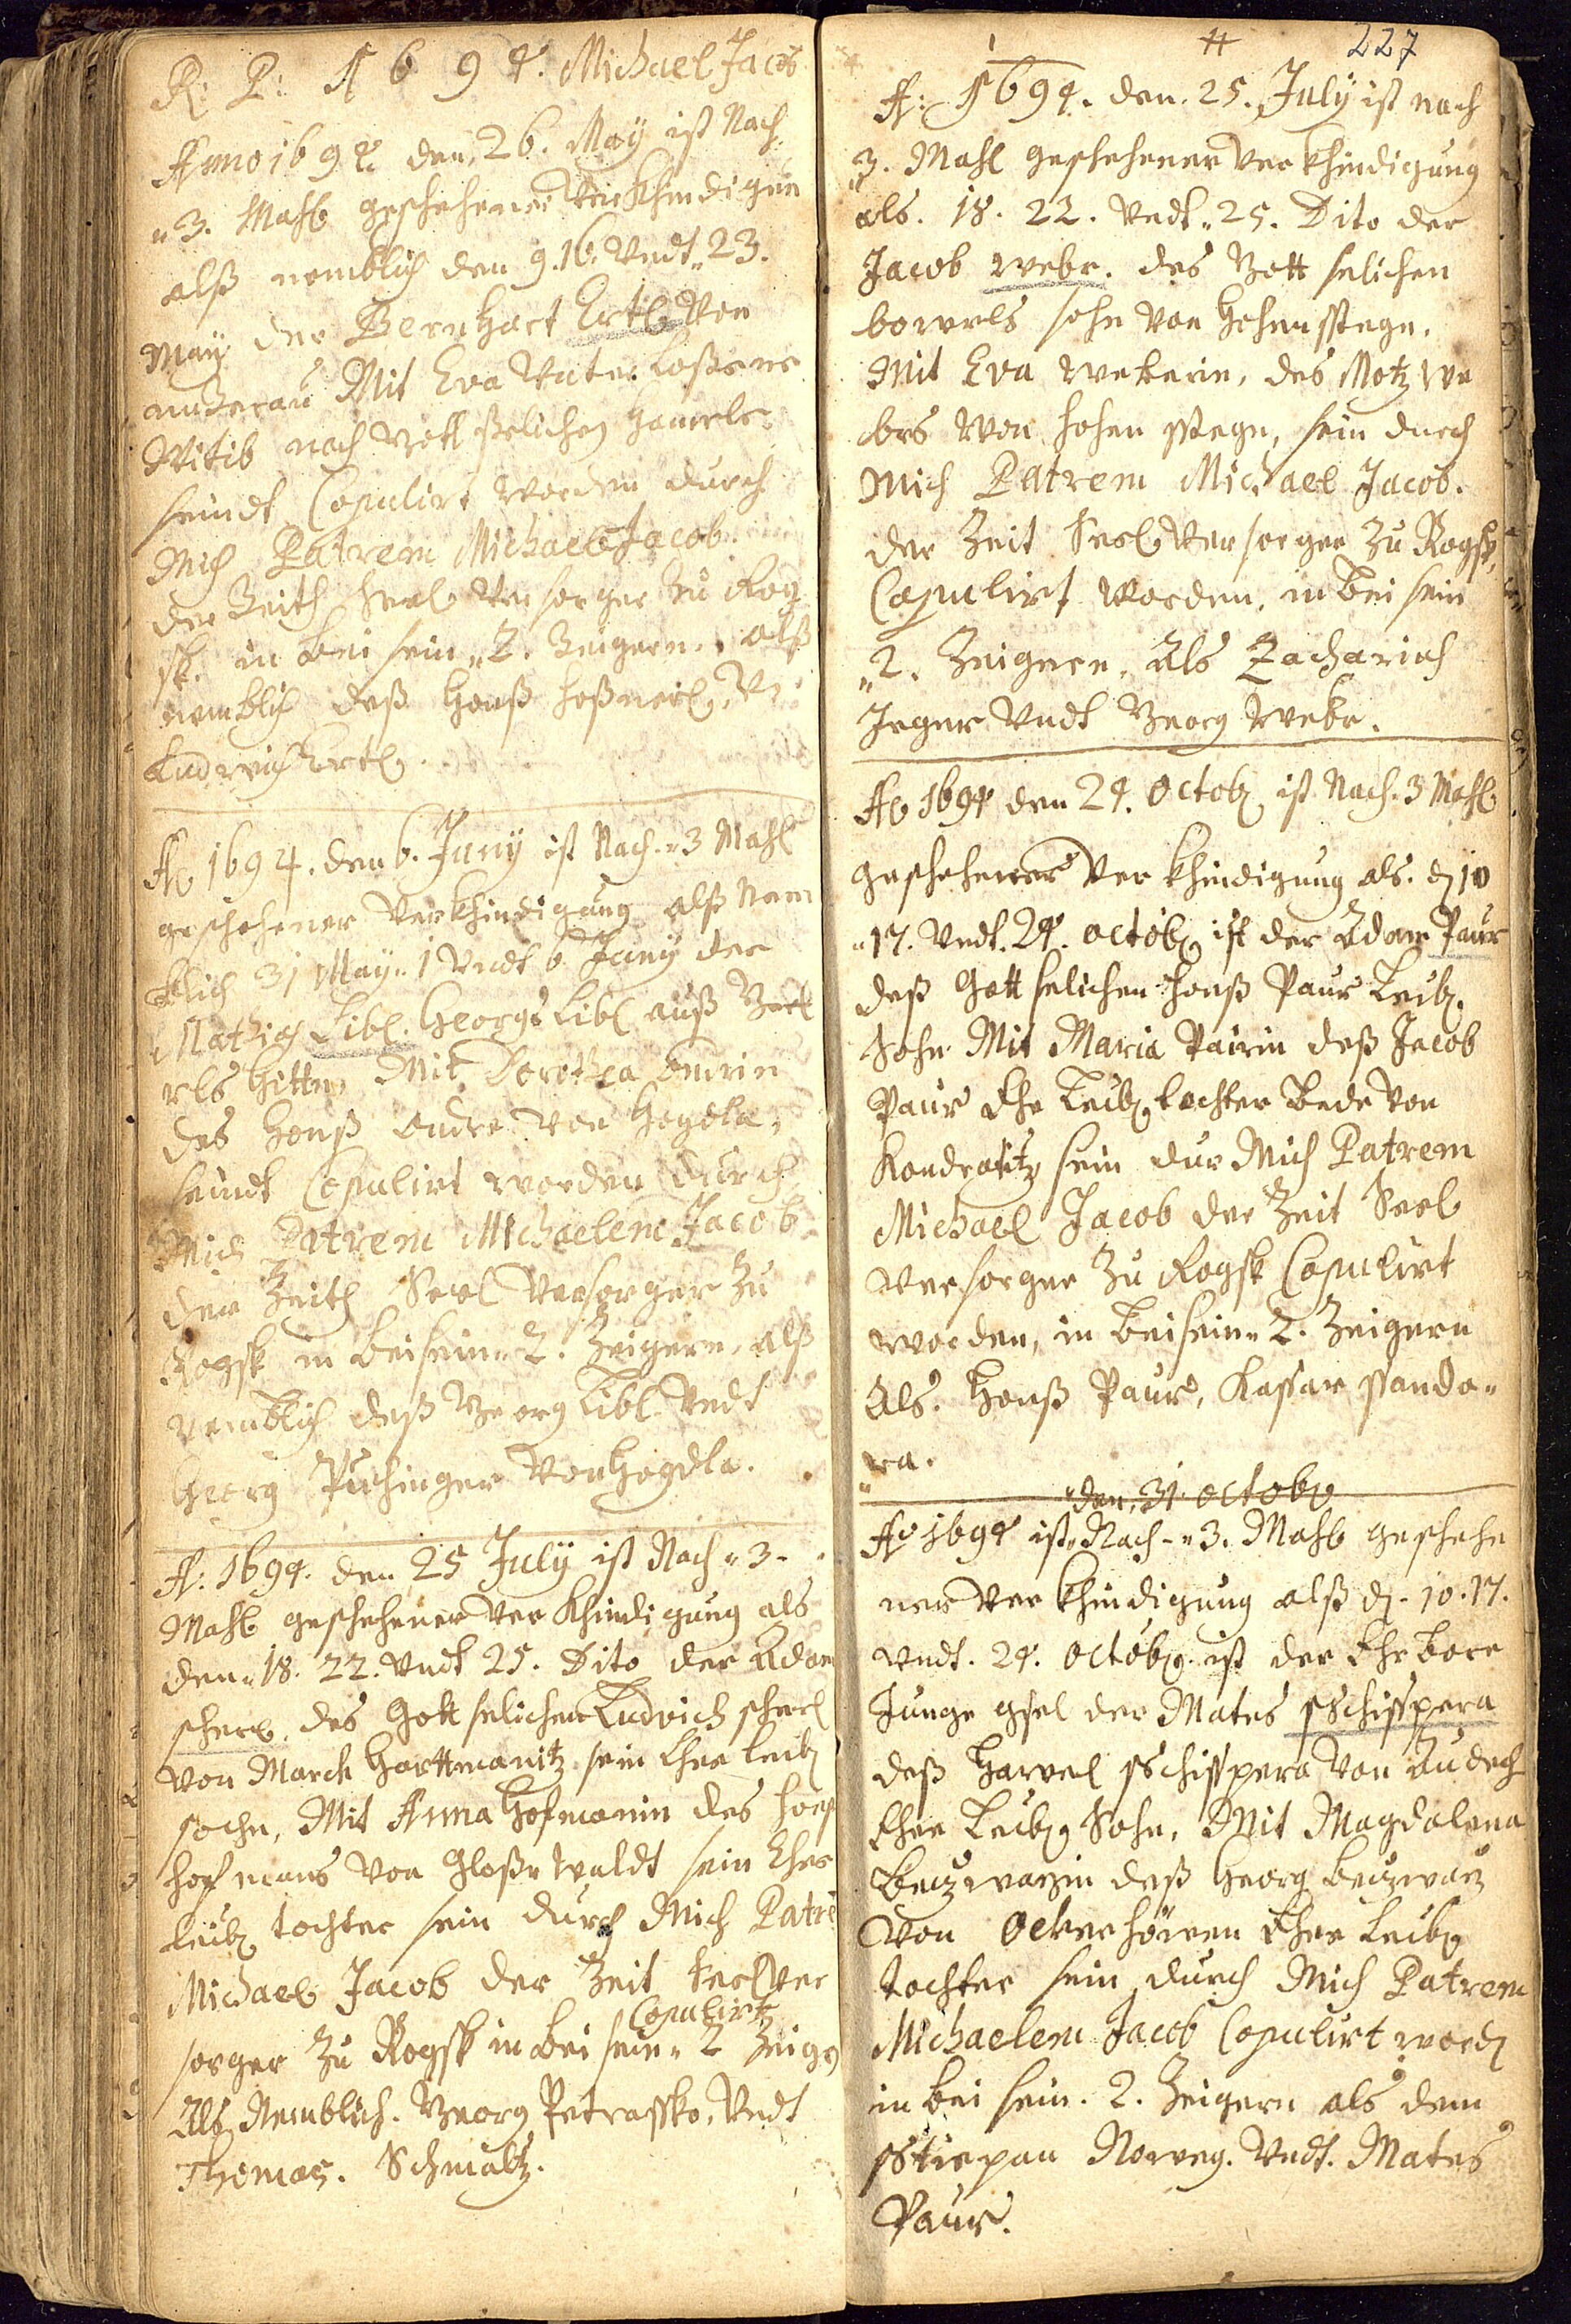 R: P: 1694. Michael Jacob
Anno 1694 den 26. May ist Nach
"3. Mahl geschehener Verkhindigun
alß nemblich den 9. 16. Vndt "23.
May der Bernhart Ertl Von
Mit Eva
Witib nach Gott selichen
seindt Copulirt worden durch
Mich Patrem Michael Jacob
der Zeith Seel Versorger Zu Rog
sk. in bei sein "2. Zeigern. alß
nemblich deß Honß
Ludwich Ertl.
Ao 1694. den 6. Juny ist Nach "3 Mahl
geschehener Verkhindigung alß Nem
blich 31 May "1 Vndt 6 Juny der
Mathias Libl. Georgs Libl auß
Hitten Mit Dorothea
des Honß Von Hogdla,
seindt Copulirt worden durch
Mich Patrem Michaelem Jacob
der Zeith Seel Versorger Zu
Rogsk in beisein "2. Zeigern, alß
nemblich deß Georg Libl Vndt
Georg Puchinger Von Hogdla.
A: 1694. den 25 July ist Nach "3-
Mahl geschehener Ver Khindigung als
den "18. 22. Vndt 25. Dito der Adam
scherl. des Gott selichen Ludwich scherl
Von March Harttmanitz sein Ehe leib
sohn, Mit Anna Hofmanin des Honß
hofmans Von Gloßer waldt sein Ehe
leib tochter sein durch Mich Patre
Michael Jacob der Zeit seel ver
Copulirt
sorger Zu Rogsk in bei sein "2 Zeigen
Als Nemblich. Georg Petrassko, Vndt
Thomas. Schmaltz.
227
A: 1694. den. 25. July ist nach
"3. Mahl geschehener verkhindigung
als. 18. 22. Vndt "25. Dito der
Jacob webr. des Gott selichen
sohn Von Hohensteegn.
Mit Eva weberin, des Motz we
brs Von hohen stegn, sein durch
Mich Patrem Michael Jacob.
der Zeit Seel Versorger Zu Rogsk,
Copulirt worden, in bei sein
"2. Zeigern, Als Zacharias
Jeger Vndt Georg Webr.
Ao 1694 den 24. Octob ist Nach 3 Mahl
geschehener Verkhindigung als. d 10
"17. Vndt. 24. octob ist der Adam Paur
deß Gott selichen Honß Paur Leib
Sohn Mit Maria Paurin deß Jacob
Paur Ehe Leib tochter Bede Von
Kondratitz sein dur Mich Patrem
Michael Jacob der Zeit Seel
Versorger Zu Rogsk Copulirt
worden, in beisein "2. Zeigern
Als. Honß Paur, Kaspar ssando"
"ra.
den, 31 octob
Ao 1694 ist Nach "3. Mahl geschehe
ner Verkhindigung alß d. 10. 17.
Vndt. 24. octob. ist der Ehr bore
Junge gsel der Mates sschisspera
deß Havel sschisspera Von
Ehe Leib Sohn, Mit Magdalena
deß Georg
Von Ehe Leib
tochter sein durch Mich Patrem
Michaelem Jacob Copulirt word
in bei sein. 2. Zeigern als dem
sstiepan Vndt. Mates
Paur.